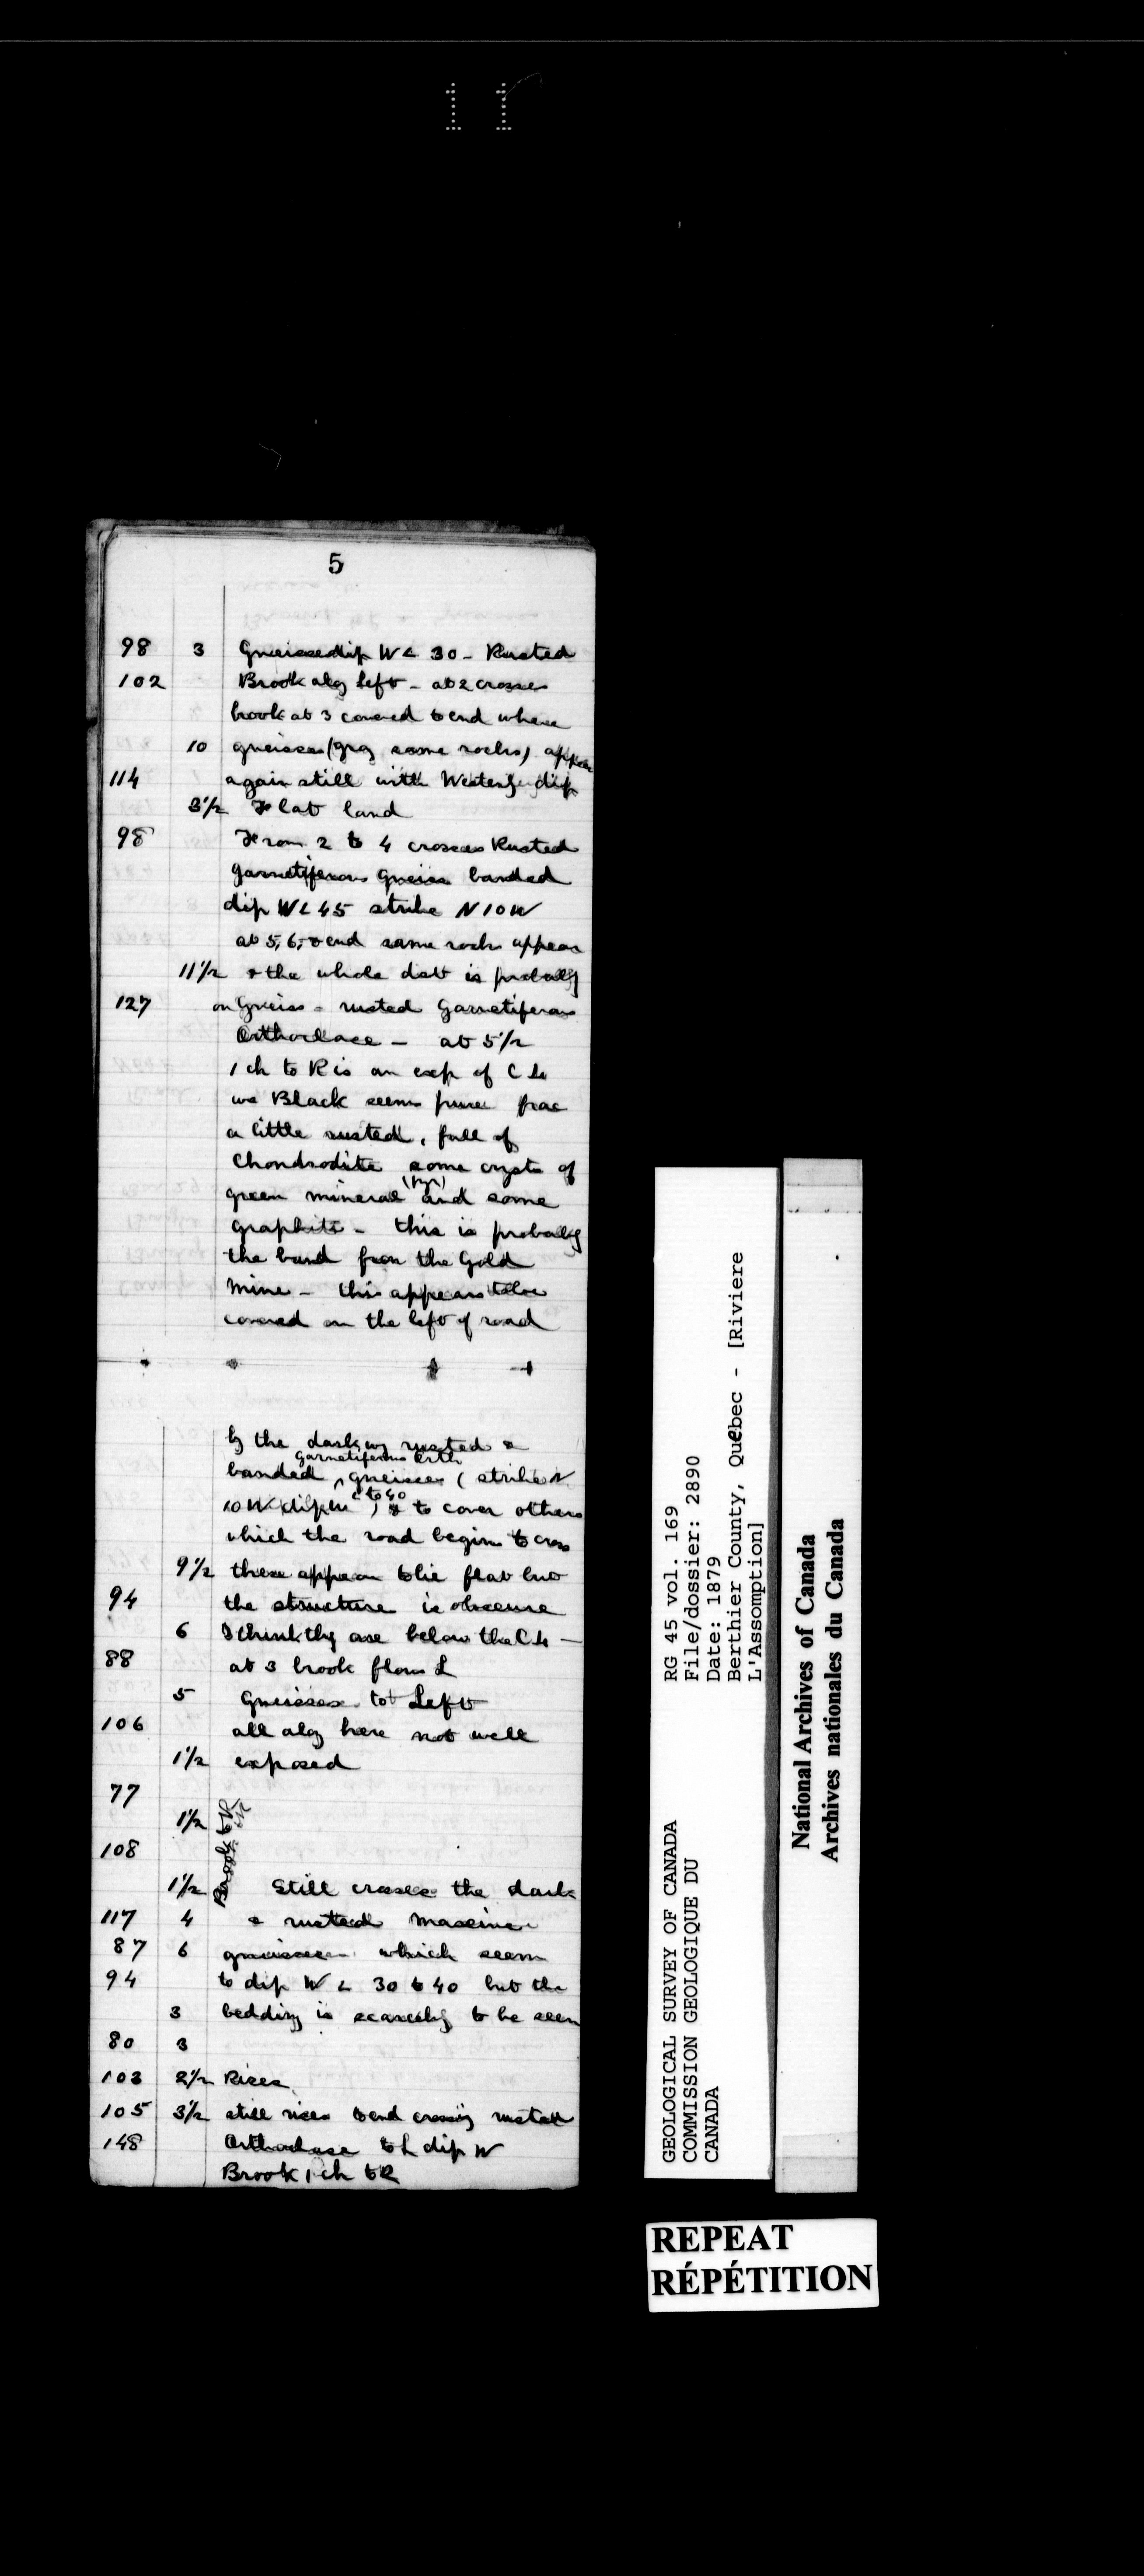 11
5
98 3 Gneisses dip W < 30 - Rusted
102 Brook alg Left - at 2 crosses
brook at 3 covered to end where
10 gneisses (grg same rocks) appear
114 again still with Westerly dip
3 1/2 Flat land
98 From 2 to 4 crosses Rusted
garnetiferous gneiss banded
dip W < 45 strike N 10 W
at 5, 6, & end same rocks appear
11 1/2 & the whole dist is probably
127 on Gneiss - rusted Garnetiferous
Orthoclase - at 5 1/2
1 ch to R is an exp of C L
Black seems pure
a little rusted, full of
Chondrodite some crysts of
green mineral (pyr) and some
graphite - this is probably
the band from the Gold
Mine - this appears to be
covered on the left of road
by the dark rusted &
banded, Garnetiferous Orth gneisses (strike N
10 W dip W < to 40) & to cover others
which the road begins to cross
9 1/2 these appear to lie flat but
94 the structure is obscure
6 I think they are below the C L —
88 at 3 brook flows L
5 Gneisses to Left
106 all alg here not well
1 1/2 exposed
77
1 1/2
108
Brook to R
1 1/2 Still crosses the dark
117 4 & rusted massive
87 6 gneisses which seem
94 to dip W < 30 to 40 but the
3 bedding is scarcely to be seen
80 3
103 2 1/2 Rises
105 3 1/2 still rises to end crossing rusted
148 Orthoclase to L dip W
Brook 1 ch to R
GEOLOGICAL SURVEY OF CANADA
COMMISSION GEOLOGIQUE DU
CANADA
RG 45 vol. 169
File/dossier: 2890
Date: 1879
Berthier County, Quebec - [Riviere
L'Assomption]
National Archives of Canada
Archives nationales du Canada
REPEAT
RÉPÉTITION